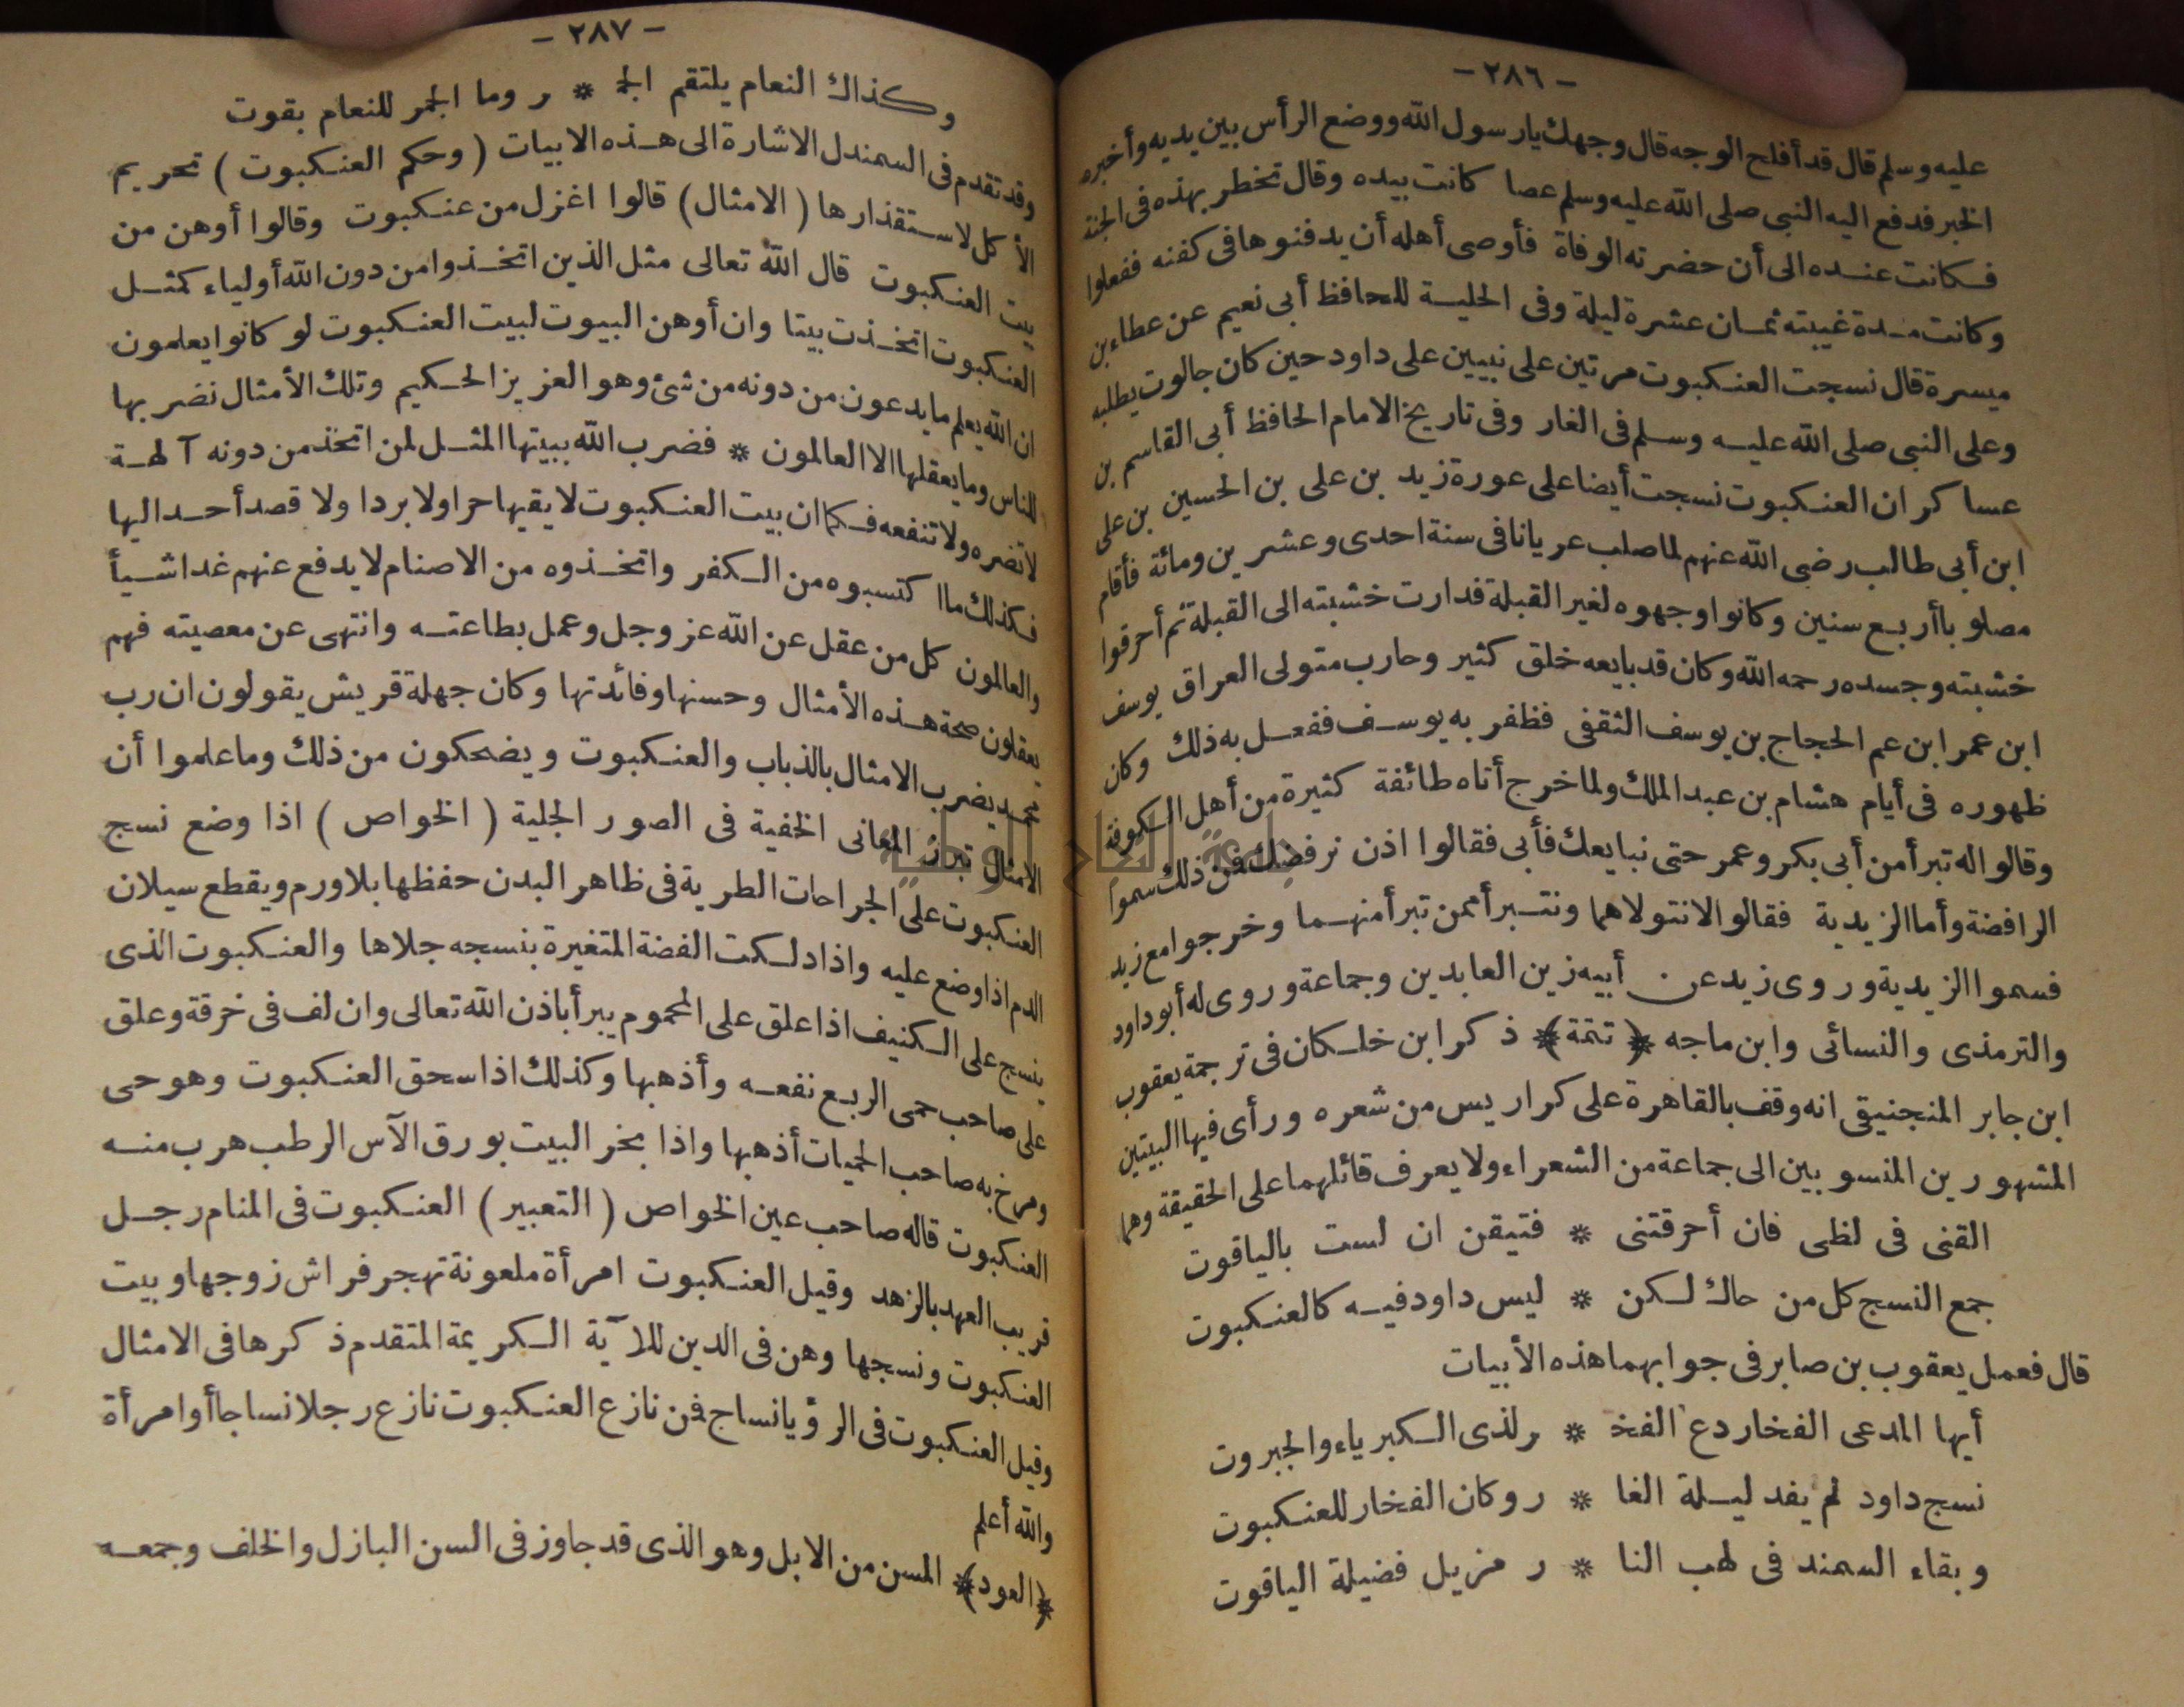 - ٢٨٦ -
عليه وسلم قال قد أفلح الوجه قال وجهك يارسول الله ووضع الرأس بين يديه وأخبره
الخبر فدفع اليه النبى صلى الله عليه وسلم عصا كانت بيده وقال تخطر بهذه فى الجنة
فكانت عنده الى أن حضرته الوفاة فأوصى أهله أن يدفنوها فى كفنه ففعلوا
وكانت مدة غيبته ثمان عشرة ليلة وفى الحلية للحافظ أبى نعيم عن عطاء بن
ميسرة قال نسجت العنكبوت مرتين على نبيين على داود حين كان جالوت يطلبه
وعلى النبى صلى الله عليه وسلم فى الغار وفى تاريخ الامام الحافظ أبى القاسم بن
عساكر ان العنكبوت نسجت أيضا على عورة زيد بن على بن الحسين بن على
ابن أبى طالب رضى الله عنهم لما صلب عريانا فى سنة احدى وعشرين ومائة فأقام
مصلوبا أربع سنين وكانوا وجهوه لغير القبلة فدارت خشبته الى القبلة ثم أحرقوا
خشبته وجسده رحمه الله وكان قد بايعه خلق كثير وحارب متولى العراق يوسف
ابن عمر ابن عم الحجاج بن يوسف الثقفى فظفر به يوسف ففعل به ذلك وكان
ظهوره فى أيام هشام بن عبد الملك ولما خرج أتاه طائفة كثيرة من أهل الكوفة
وقالوا له تبرأ من أبى بكر وعمر حتى نبايعك فأبى فقالوا اذن نرفضك فمن ذلك سموا
الرافضة وأما الزيدية فقالوا لانتولاهما ونتبرأ ممن تبرأ منهما وخرجوا مع زيد
فسموا الزيدية وروى زيد عن أبيه زين العابدين وجماعة وروى له أبو داود
والترمذى والنسائى وابن ماجه ﴿ تتمة ﴾ ذكر ابن خلكان فى ترجمة يعقوب
ابن جابر المنجنيقى انه وقف بالقاهرة على كراريس من شعره ورأى فيها البيتين
المشهورين المنسوبين الى جماعة من الشعراء ولا يعرف قائلهما على الحقيقة وهما
القنى فى لظى فان أحرقتنى * فتيقن ان لست بالياقوت
جمع النسج كل من حاك لكن * ليس داود فيه كالعنكبوت
قال فعمل يعقوب بن صابر فى جوابهما هذه الأبيات
أيها المدعى الفخار دع الفخ * ر لذى الكبرياء والجبروت
نسج داود لم يفد ليلة الغا * ر وكان الفخار للعنكبوت
وبقاء السمند فى لهب النا * ر مزيل فضيلة الياقوت
- ٢٨٧ -
وكذاك النعام يلتقم الج * ر وما الجمر للنعام بقوت
وقد تقدم فى السمندل الاشارة الى هذه الابيات ( وحكم العنكبوت ) تحريم
الأكل لاستقذارها ( الامثال ) قالوا اغزل من عنكبوت وقالوا أوهن من
بيت العنكبوت قال الله تعالى مثل الذين اتخذوا من دون الله أولياء كمثل
العنكبوت اتخذت بيتا وان أوهن البيوت لبيت العنكبوت لو كانوا يعلمون
ان الله يعلم ما يدعون من دونه من شئ وهو العزيز الحكيم وتلك الأمثال نضربها
للناس وما يعقلها الا العالمون * فضرب الله ببيتها المثل لمن اتخذ من دونه آلهة
لا تضره ولا تنفعه فكما ان بيت العنكبوت لا يقيها حرا ولا بردا ولا قصد أحد اليها
فكذلك ما اكتسبوه من الكفر واتخذوه من الاصنام لا يدفع عنهم غدا شيأ
والعالمون كل من عقل عن الله عز وجل وعمل بطاعته وانتهى عن معصيته فهم
يعقلون صحة هذه الأمثال وحسنها وفائدتها وكان جهلة قريش يقولون ان رب
محمد يضرب الامثال بالذباب والعنكبوت ويضحكون من ذلك وما علموا أن
الامثال تبرز المعانى الخفية فى الصور الجلية ( الخواص ) اذا وضع نسج
العنكبوت على الجراحات الطرية فى ظاهر البدن حفظها بلا ورم ويقطع سيلان
الدم اذا وضع عليه واذا دلكت الفضة المتغيرة بنسجه جلاها والعنكبوت الذى
ينسج على الكنيف اذا علق على المحموم يبرأ باذن الله تعالى وان لف فى خرقة وعلق
على صاحب حمى الربع نفعه وأذهبها وكذلك اذا سحق العنكبوت وهو حى
ومرخ به صاحب الحميات أذهبها واذا بخر البيت بورق الآس الرطب هرب منه
العنكبوت قاله صاحب عين الخواص ( التعبير ) العنكبوت فى المنام رجل
قريب العهد بالزهد وقيل العنكبوت امرأة ملعونة تهجر فراش زوجها وبيت
العنكبوت ونسجها وهن فى الدين للآية الكريمة المتقدم ذكرها فى الامثال
وقيل العنكبوت فى الرؤيا نساج فمن نازع العنكبوت نازع رجلا نساجا أو امرأة
والله أعلم
﴿ العود ﴾ المسن من الابل وهو الذى قد جاوز فى السن البازل والخلف وجمعه
جامعة النجاح الوطنية